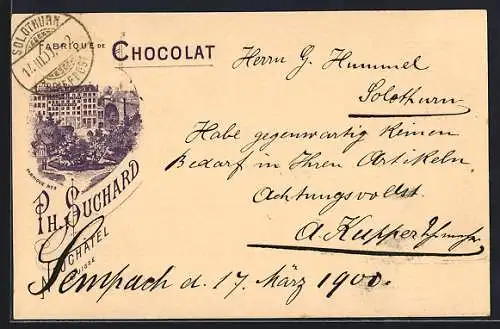 SOLOTHURN
17.III.
FABRIQUE DE CHOCOLAT
PH. SUCHARD
NEUCHATEL
SUISSE
Herrn G. Hummel
Solothurn
Habe gegenwärtig keinen
Bedarf in Ihren Artikeln
Achtungsvollst
A. Kupper
Sempach d. 17. März 1900.